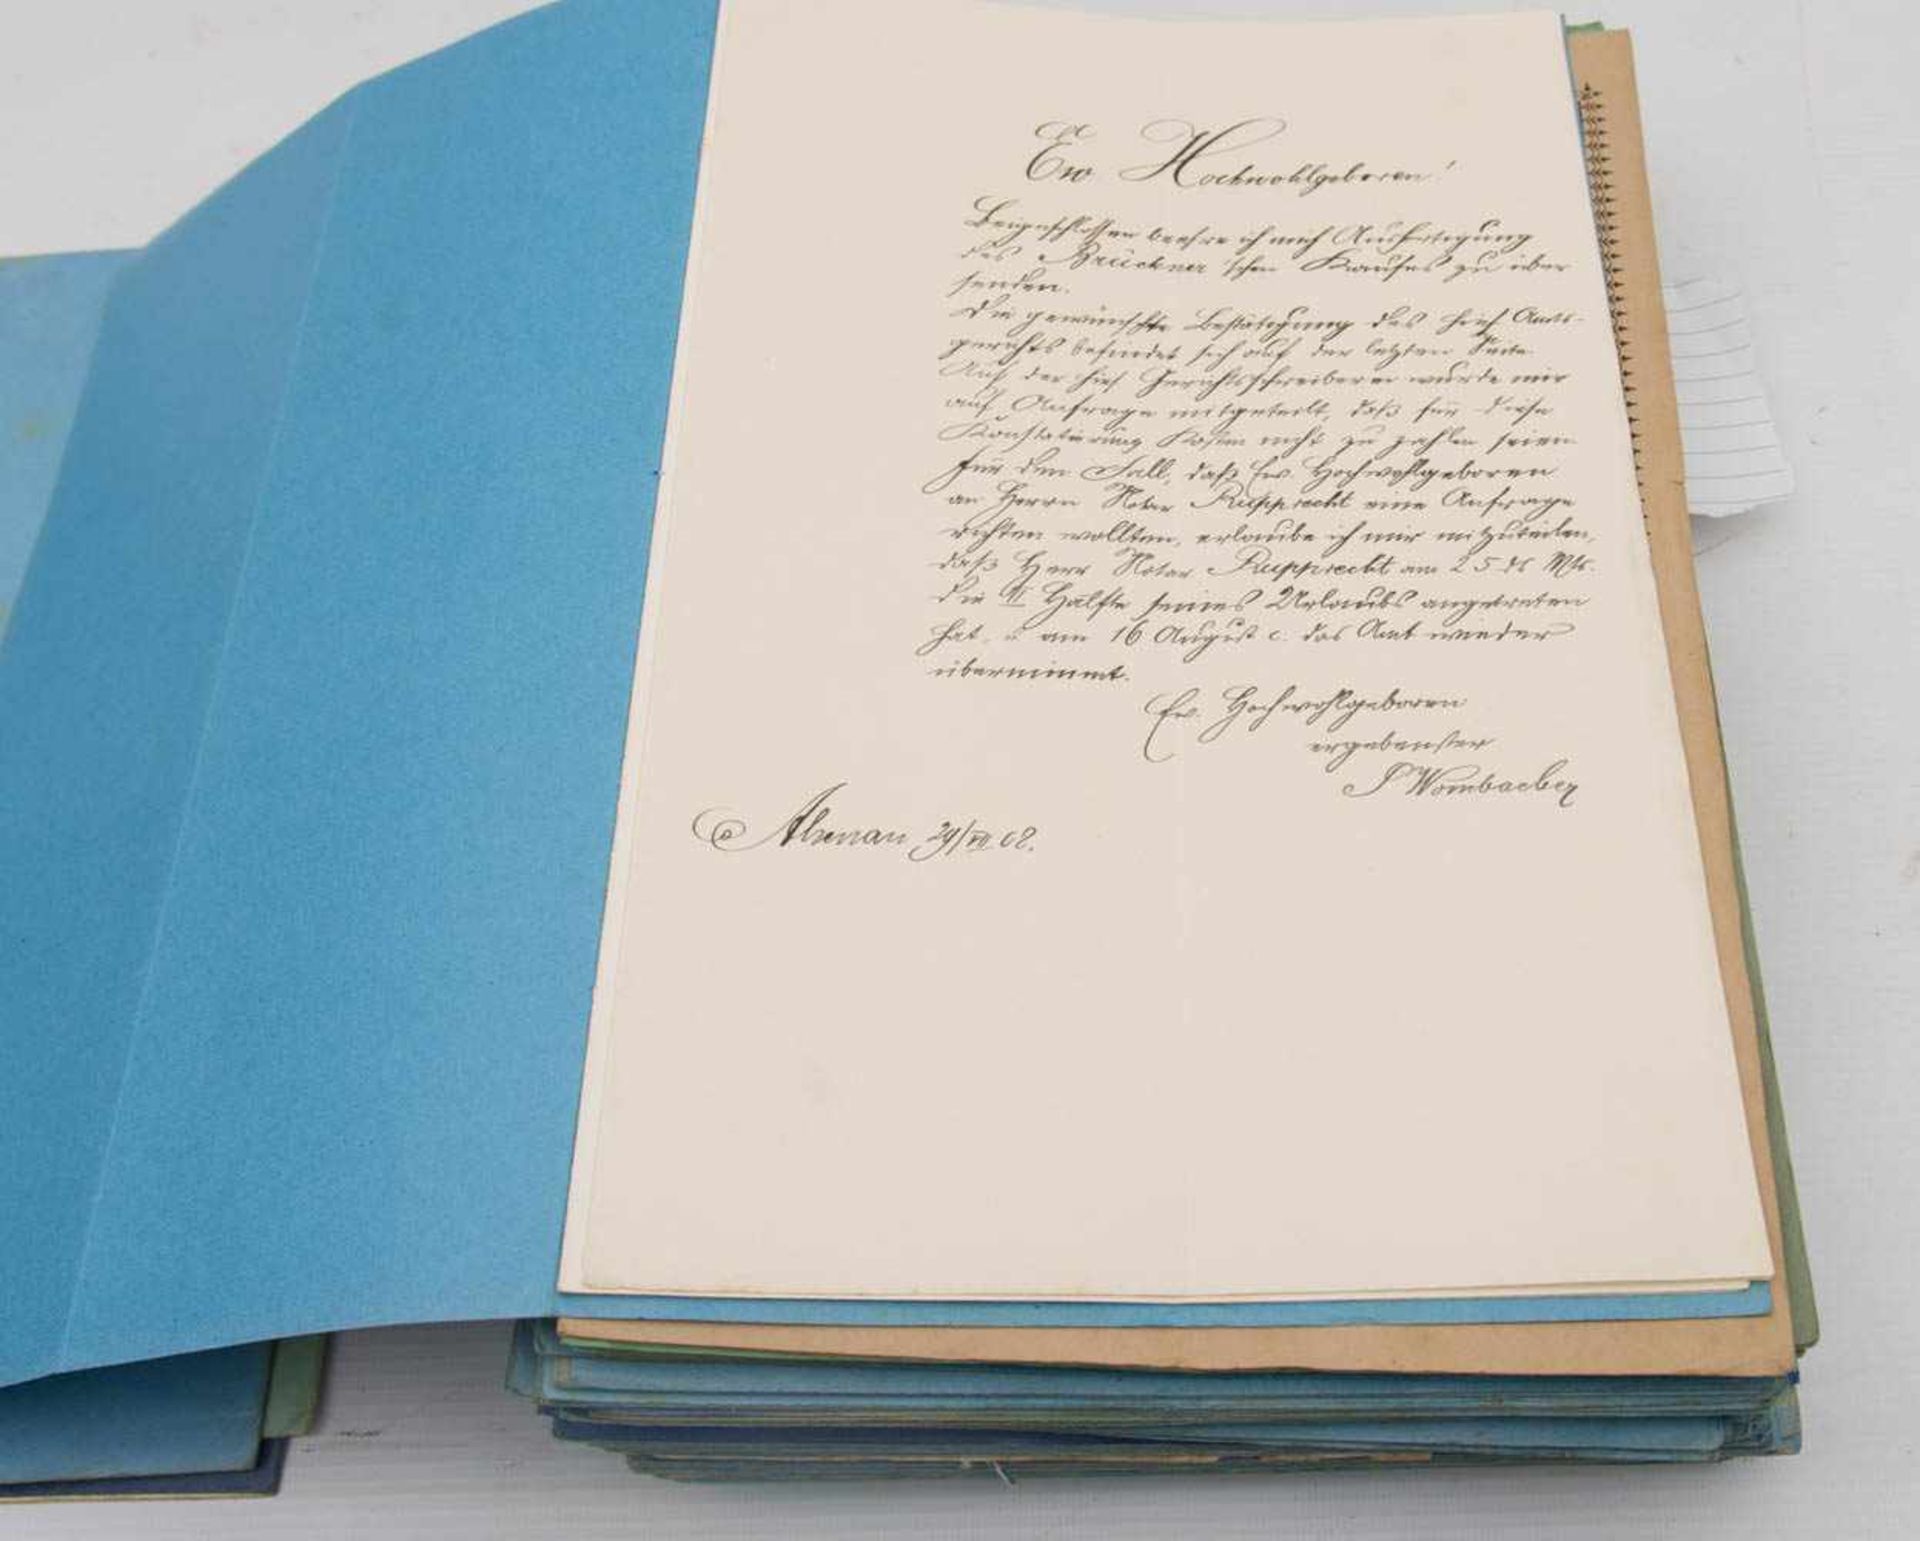 Ew. Hochwohlgeboren!
Beigeschlossen beehre ich mich Ausfertigung
des Brückner'schen Kaufes zu über
senden.
Die gewünschte Bestätigung des hies. Amts-
gerichts befindet sich auf der letzten Seite.
Auf der hies. Gerichtsschreiberei wurde mir
auf Anfrage mitgeteilt, daß für diese
Konstatierung Kosten nicht zu zahlen seien.
Für den Fall, daß Ew. Hochwohlgeboren
an Herrn Notar Rupprecht eine Anfrage
richten wollten, erlaube ich mir mitzuteilen,
daß Herr Notar Rupprecht am 25. ds. Mts.
die II Hälfte seines Urlaubs angetreten
hat, u. am 16 August c. das Amt wieder
übernimmt.
Ew. Hochwohlgeboren
ergebenster
J Wombacher
Alzenau 29/VII 08.